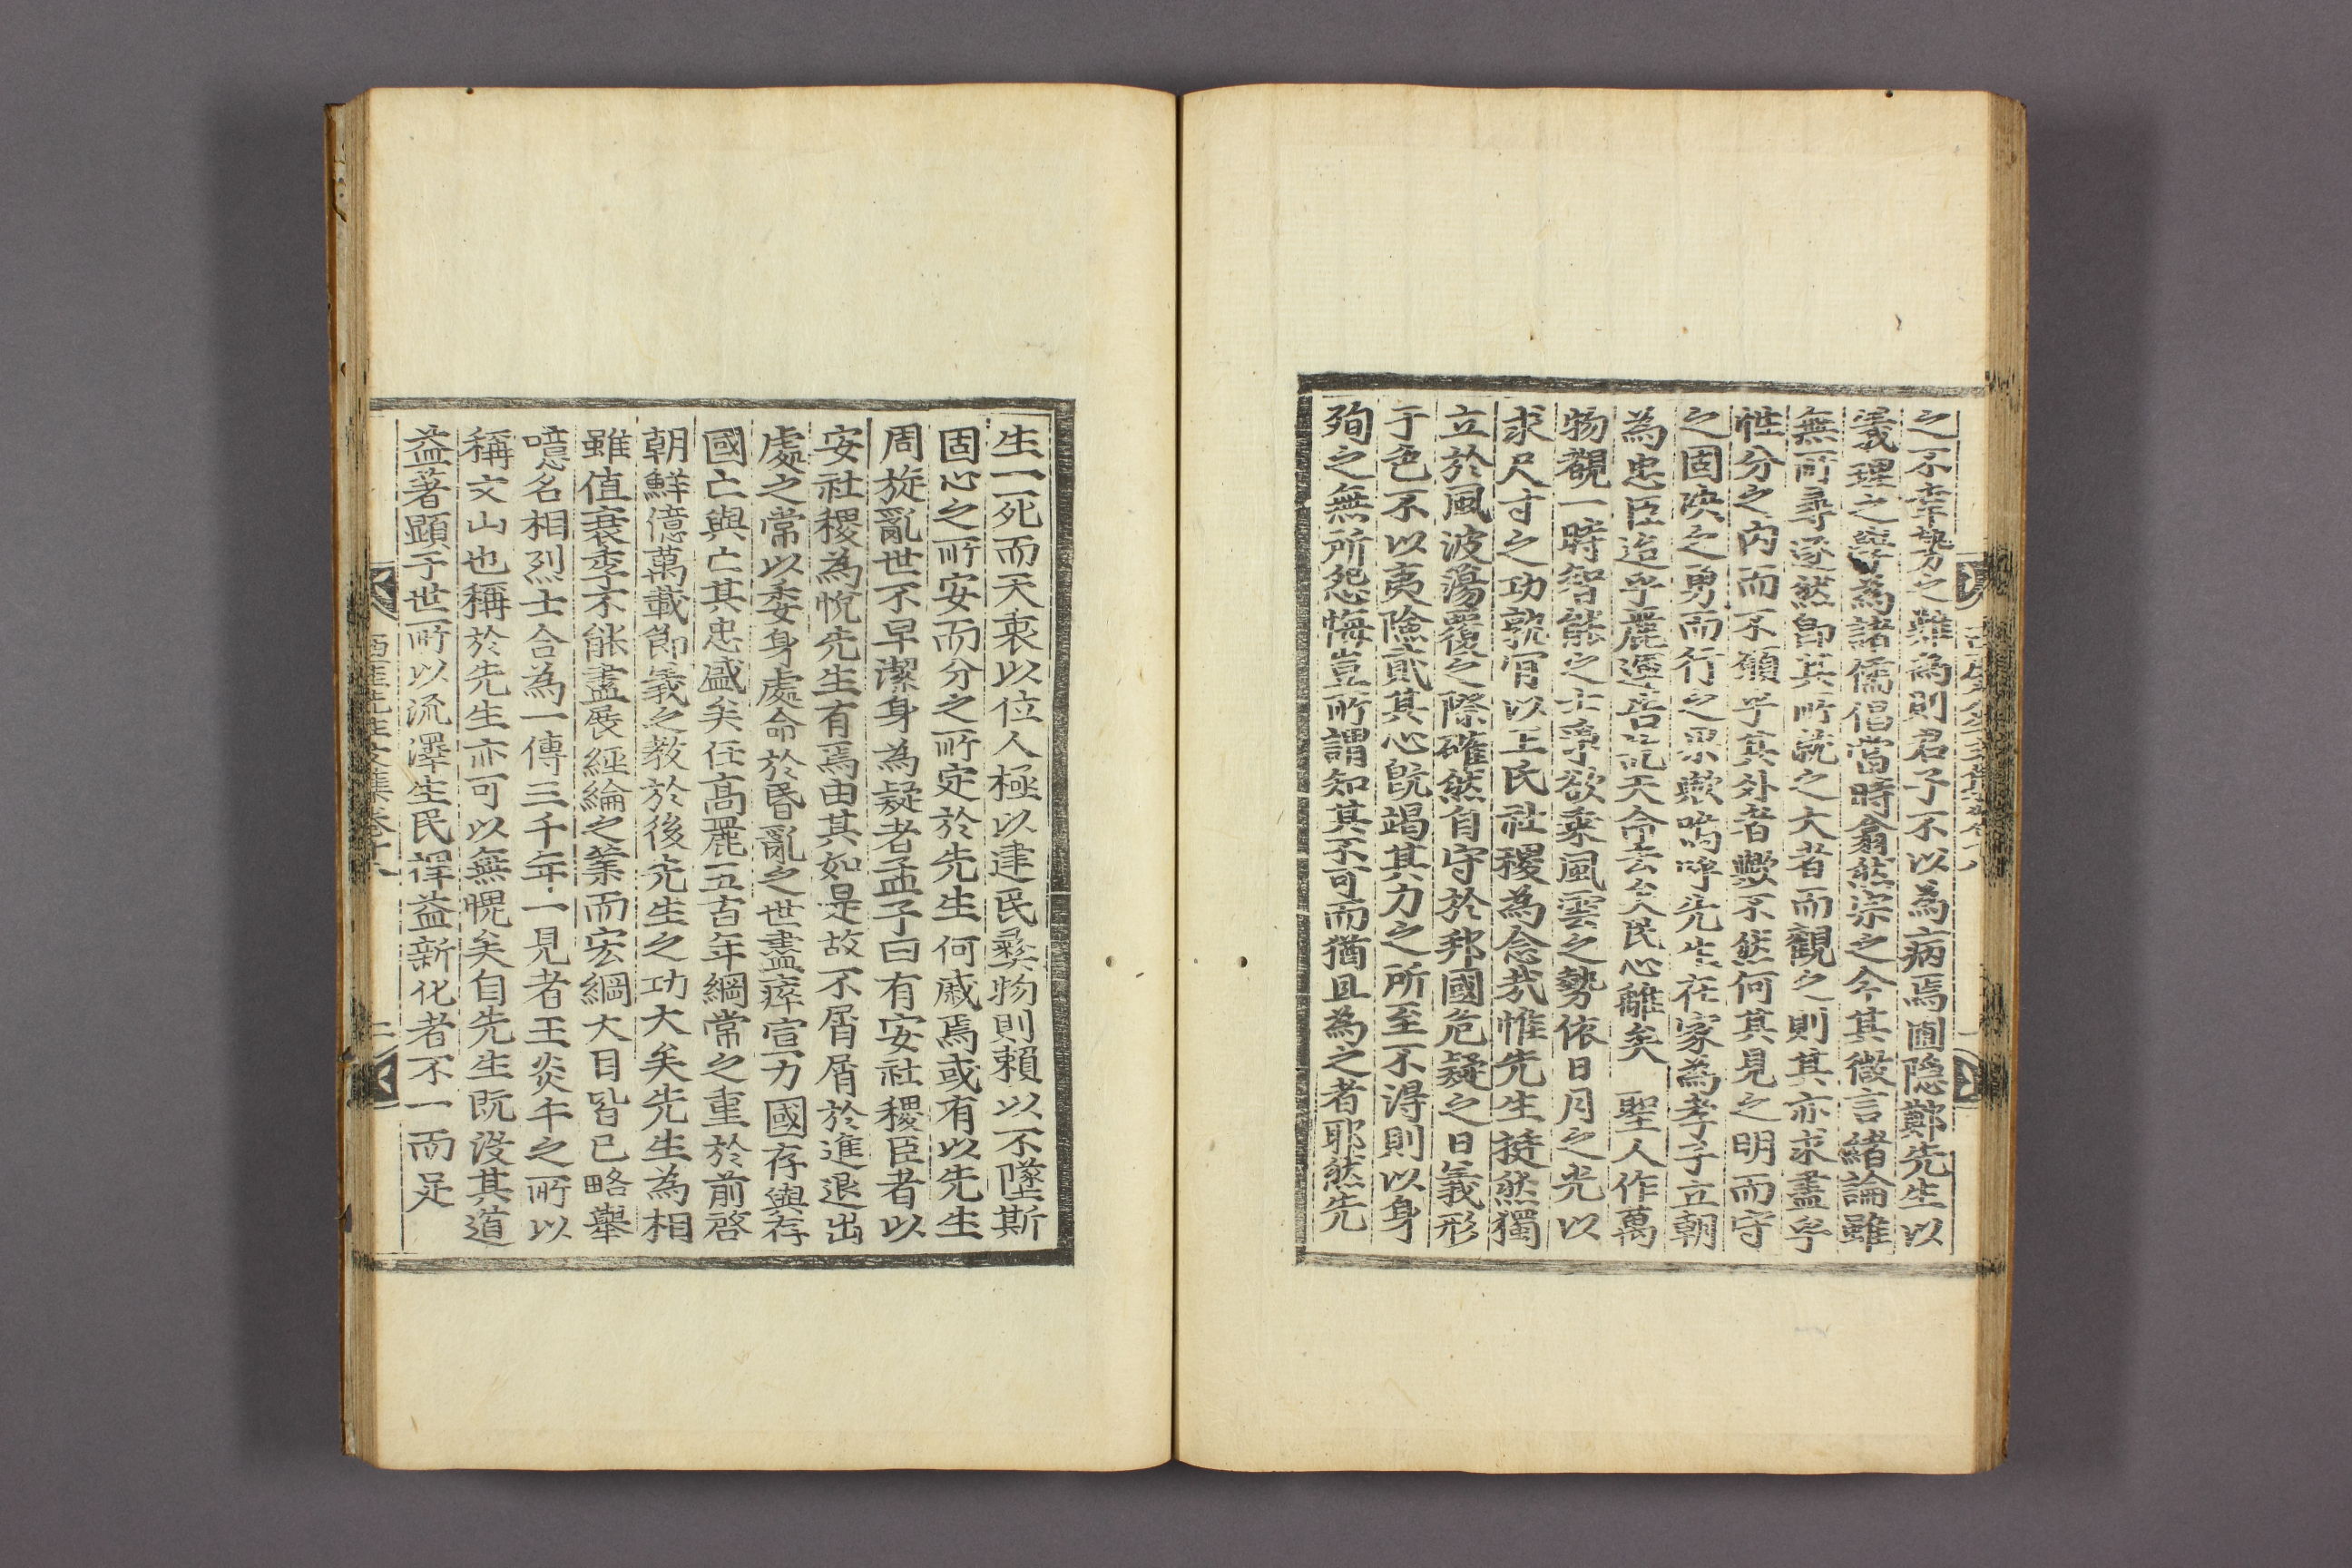 之不幸勢之難為則君子不以為病焉圃隱鄭先生以
義理之學為諸儒倡當時翕然宗之今其微言緖論雖
無所尋逐然卽其所就之大者而觀之則其亦求盡乎
性分之內而不願乎其外者歟不然何其見之明而守
之固決之勇而行之果歟嗚呼先生在家為孝子立朝
為忠臣迨乎麗運告訖天命去矣人民心離矣 聖人作萬
物覩一時智能之士爭欲乘風雲之勢依日月之光以
求尺寸之功孰肯以王氏社稷為念哉惟先生挺然獨
立於風波蕩覆之際確然自守於邦國危疑之日義形
于色不以夷險貳其心旣竭其力之所至不得則以身
殉之無所怨悔豈所謂知其不可而猶且為之者耶然先
生一死而天衷以位人極以建民彝物則賴以不墜斯
固心之所安而分之所定於先生何戚焉或有以先生
周旋亂世不早潔身為疑者孟子曰有安社稷臣者以
安社稷為悅先生有焉由其如是故不屑屑於進退出
處之常以委身處命於昏亂之世盡瘁宣力國存與存
國亡與亡其忠盛矣任高麗五百年綱常之重於前啓
朝鮮億萬載節義之教於後先生之功大矣先生為相
雖值衰季不能盡展經綸之業而宏綱大目皆已略舉
噫名相烈士合為一傳三千年一見者王炎午之所以
稱文山也稱於先生亦可以無愧矣自先生旣沒其道
益著顯于世所以流澤生民裨益新化者不一而足
西厓先生文集卷十八 二